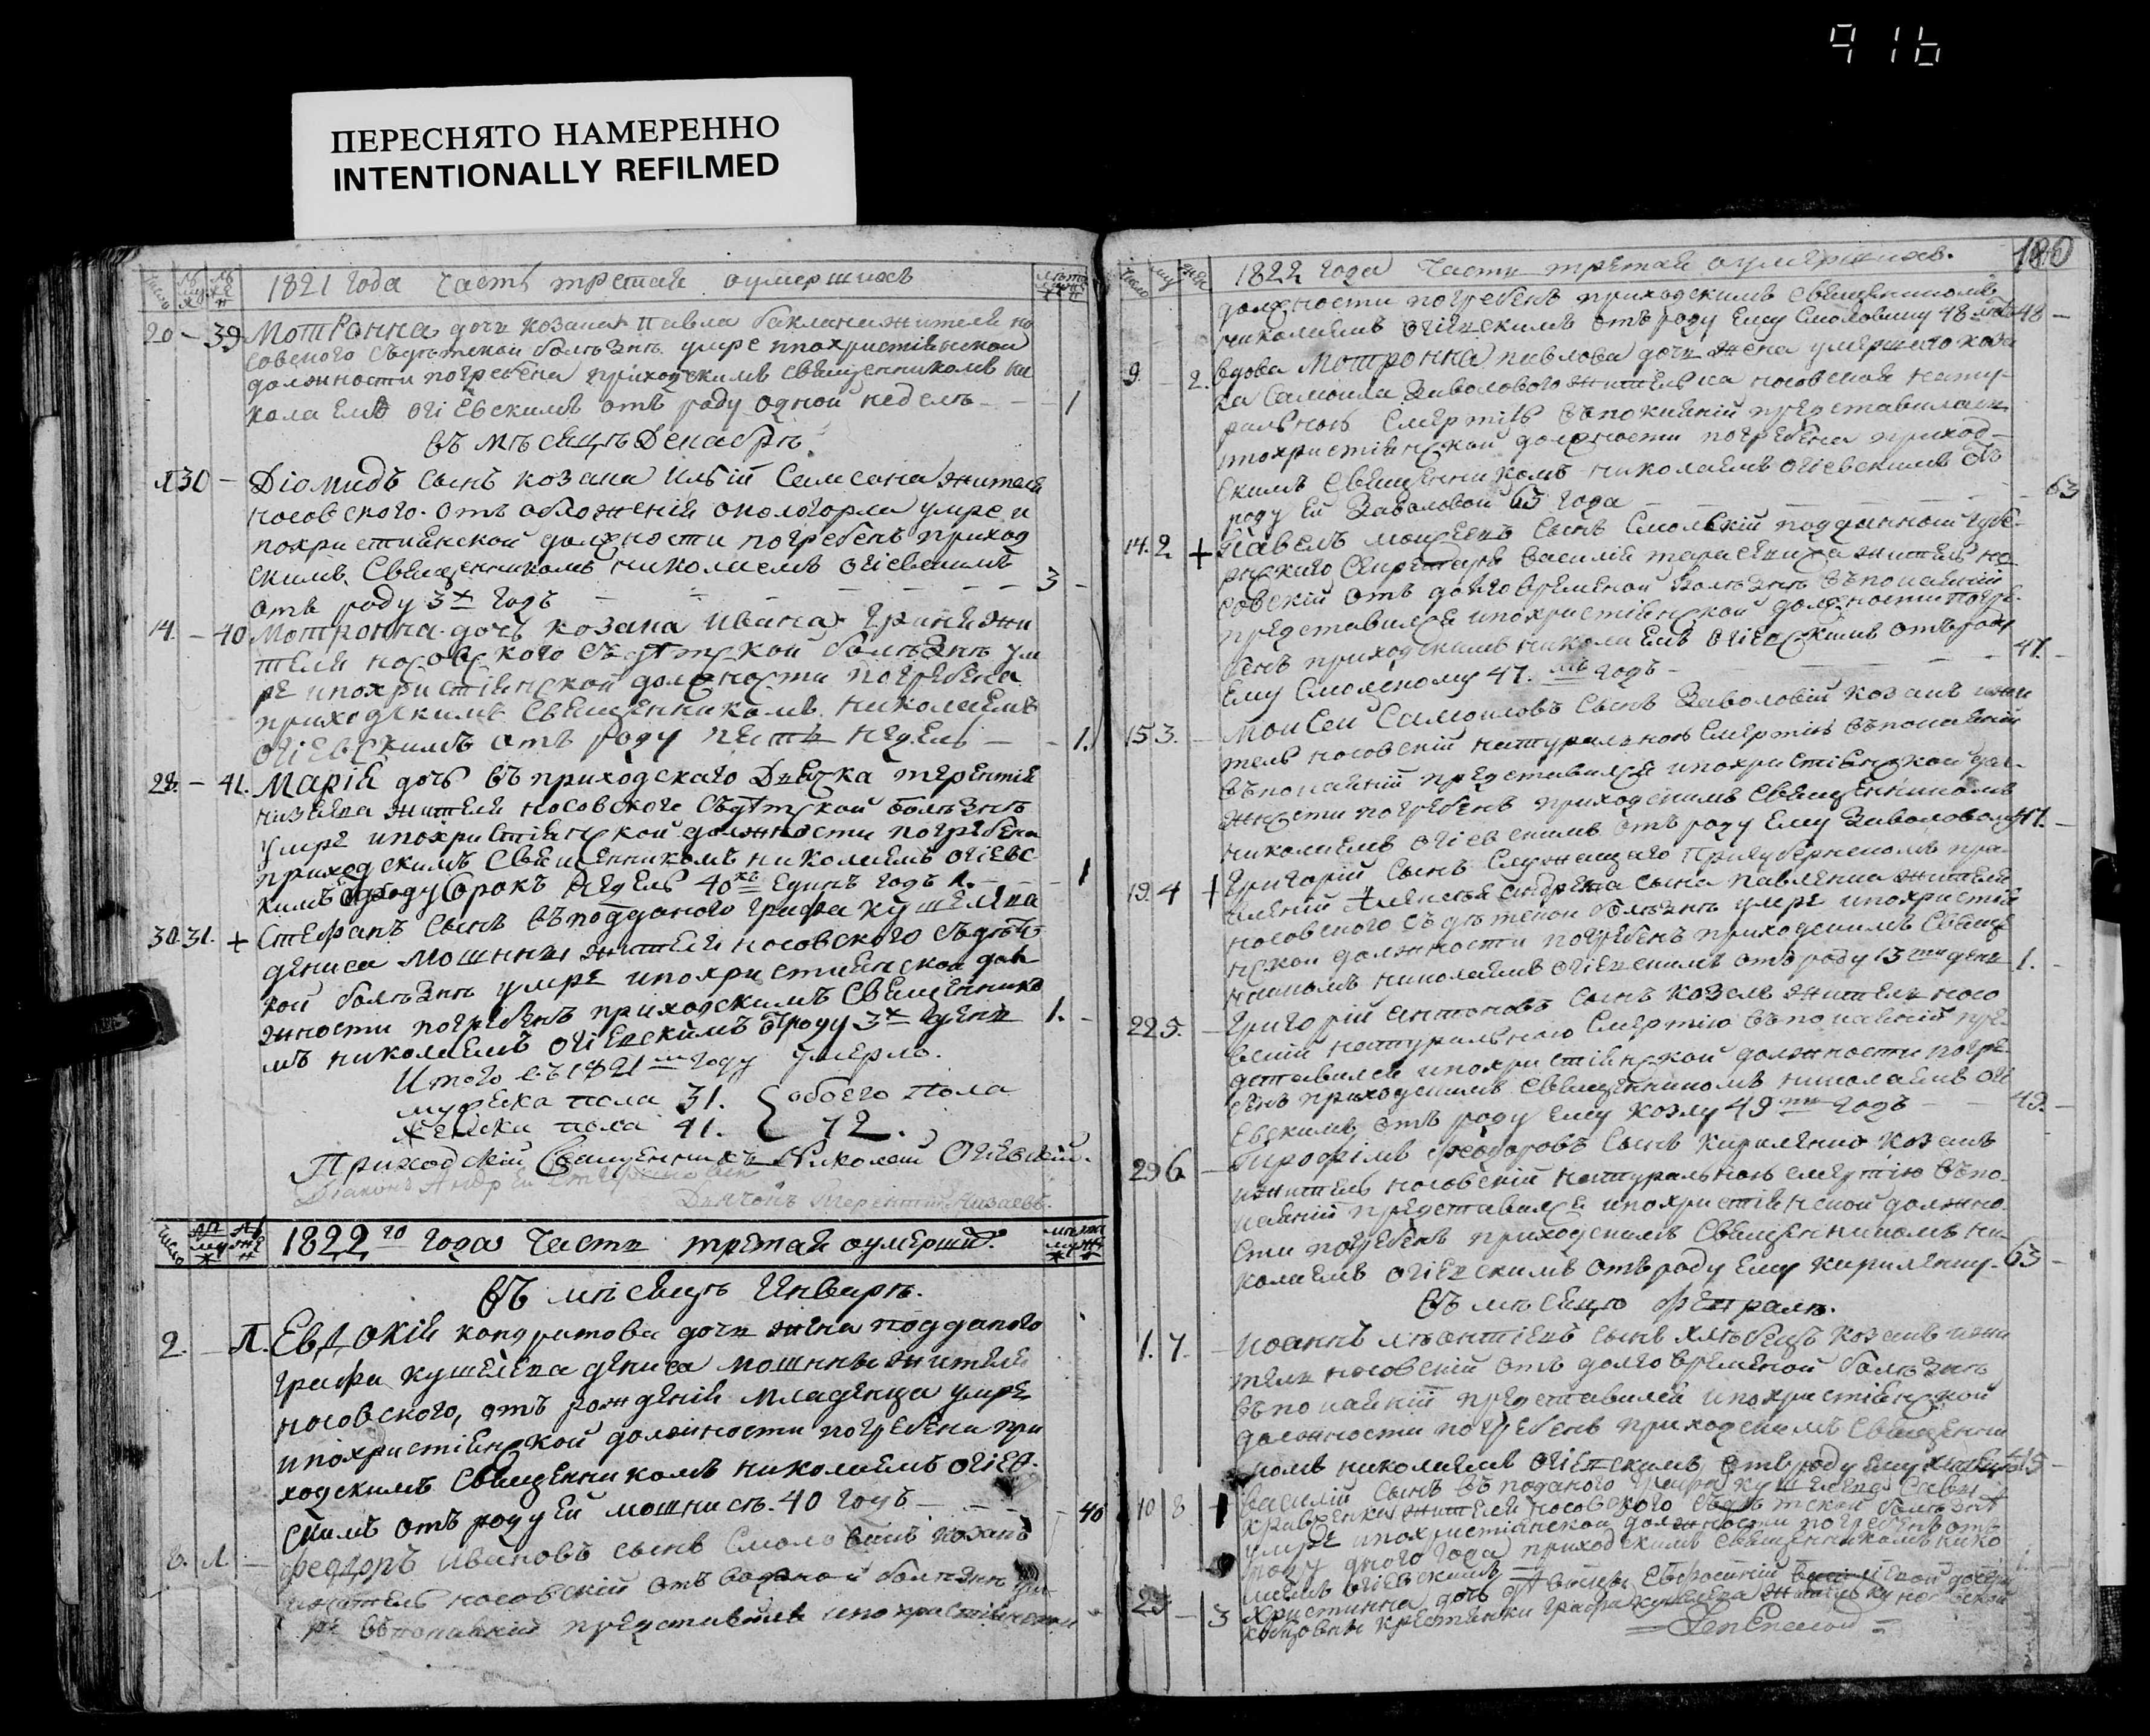 916
ПЕРЕСНЯТО НАМЕРЕННО
INTENTIONALLY REFILMED
1821 года часть третая оумершихъ
20 — 39 Мотронна дочь козака Павла Баклана жителя но
совского съдѣтской болѣзнѣ умре ипохристіянской
должности погребена приходскимъ священникомъ ни
колаемъ огіевскимъ отъ роду одной неделѣ — 1
въ мѣсяцѣ Декабрѣ.
30 — Діомидъ сынъ козака Иліи Самсона жителя
носовского отъ обложенія окологорла умре и
похристиянской должности погребенъ приход
скимъ священникомъ николаемъ огіевскимъ
отъ роду 3х годъ — 3 —
14. — 40 Мотронна дочь козака Ивана Гриня жи
теля носовского съдѣтской болѣзнѣ ум
ре ипохристіянской должности погребена
приходскимъ священникомъ николаемъ
огіевскимъ отъ роду пять недель — 1.
28. — 41. Марія дочь въприходскаго Дьячка терентія
низяева жителя носовского съдѣтской болѣзнѣ
умре ипохристіянской должности погребена
приходскимъ священникомъ николаемъ огіевс
кимъ отроду сорокъ недель 40хъ единъ годъ 1. — 1
30. 31. + Стефанъ сынъ въподданого графа кушелева
дениса мошнны жителя носовского съдѣтс
кой болѣзнѣ умре ипохристиянской дол
жности погребенъ приходскимъ священнико
мъ николаемъ огіевскимъ отроду 3х день 1. —
Итого въ 1821м году умерло.
мужеска пола 31. { обоего пола
женска пола 41. { 72.
Приходскій Священникъ Николай Огіевскій.
Діаконъ Андрей
Дьячокъ Терентій Низаевъ.
1822го года Часть третая оумерших
въ мѣсяцѣ Январѣ.
2. — Евдокія кондратова дочь жена подданого
графа кушелева дениса мошнны жителя
носовского, отъ рожденія младенца умре
ипохристіянской должности погребена при
ходскимъ священникомъ николаемъ огіев.
скимъ отъ роду ей мошнисѣ. 40 годъ — 40
Феодоръ Ивановъ сынъ Смоловикъ козакъ
житель носовскій отъ водяной болѣзнѣ
въпокаяніи представився ипохристіянской
180
1822 года Часть третая оумершихъ.
должности погребенъ приходскимъ священникомъ
николаемъ огіевскимъ отъ роду ему Смоловику 48 лѣтъ 48 —
9. 2. Вдова Мотронна павлова дочь жена умершего коза
ка Самоила Заволового жителька носовская нату-
ральною смертію въпокаяніи представилась
ипохристіянской должности погребена приход-
скимъ священникомъ николаемъ огіевскимъ отъ
роду ей Заволовой 63 года — 63
14. 2 + Павелъ моисеевъ сынъ Смольскій подданной губе-
рнского Секретаря василія тарасевича житель но
совскій отъ долговременной болѣзнѣ въпокаяніи
представился ипохристіянской должности погре-
бенъ приходскимъ николаемъ огіевскимъ отъ роду
ему Смолскому 47. мъ годъ — 47. —
15 3. — Моисей Самоиловъ сынъ Заволовій козакъ ижи
тель носовскій натуральною смертію въпокаяніи
въпокаяніи представился ипохристіянской дол-
жности погребенъ приходскимъ священникомъ
николаемъ огіевскимъ отъ роду ему Заволовому 47. —
19. 4 + Григорій сынъ служащаго Пригубернскомъ пра-
вленіи Алексея андреева сына павленка жителя
носовского съдѣтской болѣзнѣ умре ипохристія
нской должности погребенъ приходскимъ священ
никомъ николаемъ огіевскимъ отъ роду 13 день 1. —
22 5. — Григорій антоновъ сынъ козелъ житель носо
вскій натуральною смертію въпокаяніи пре-
дставился ипохристіянской должности погре-
бенъ приходскимъ священникомъ николаемъ огі
евскимъ отъ роду ему козлу 49 годъ — 49. —
29 6. — Трофімъ феодоровъ сынъ кириленко козакъ
ижитель носовскій натуральною смертію въпо
каяніи представился ипохристіянской должно
сти погребенъ приходскимъ священникомъ ни-
колаемъ огіевскимъ отъ роду ему кириленку. 63 —
въ мѣсяцѣ февралѣ.
1. 7. — Иоаннъ леонтіевъ сынъ хлѣбецъ козакъ ижи
тель носовскій отъ долговременной болѣзнѣ
въпокаяніи представился ипохристіянской
должности погребенъ приходскимъ священни
комъ николаемъ огіевскимъ отъ роду ему
10 8 Василій сынъ въподаного графа кушелева Савы
кравченка жителя носовского съдѣтской болѣзнѣ
умре ипохристіянской должности погребенъ отъ
роду дного года приходскимъ священникомъ нико
лаемъ огіевскимъ —
23 — 3 Христинна дочь
крестянки графа кушелева